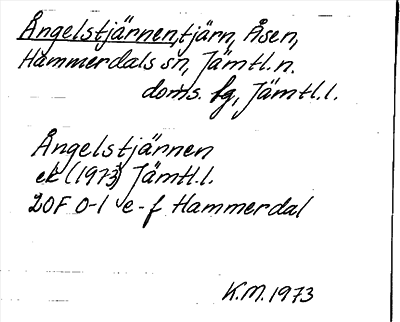 Ångelstjärnen, tjärn, Åsen,
Hammerdals sn, Jämtl. n.
doms. fg, Jämtl.l.
Ångelstjärnen
ek (1973) Jämtl.l.
20F 0-1 e-f Hammerdal
K.M. 1973